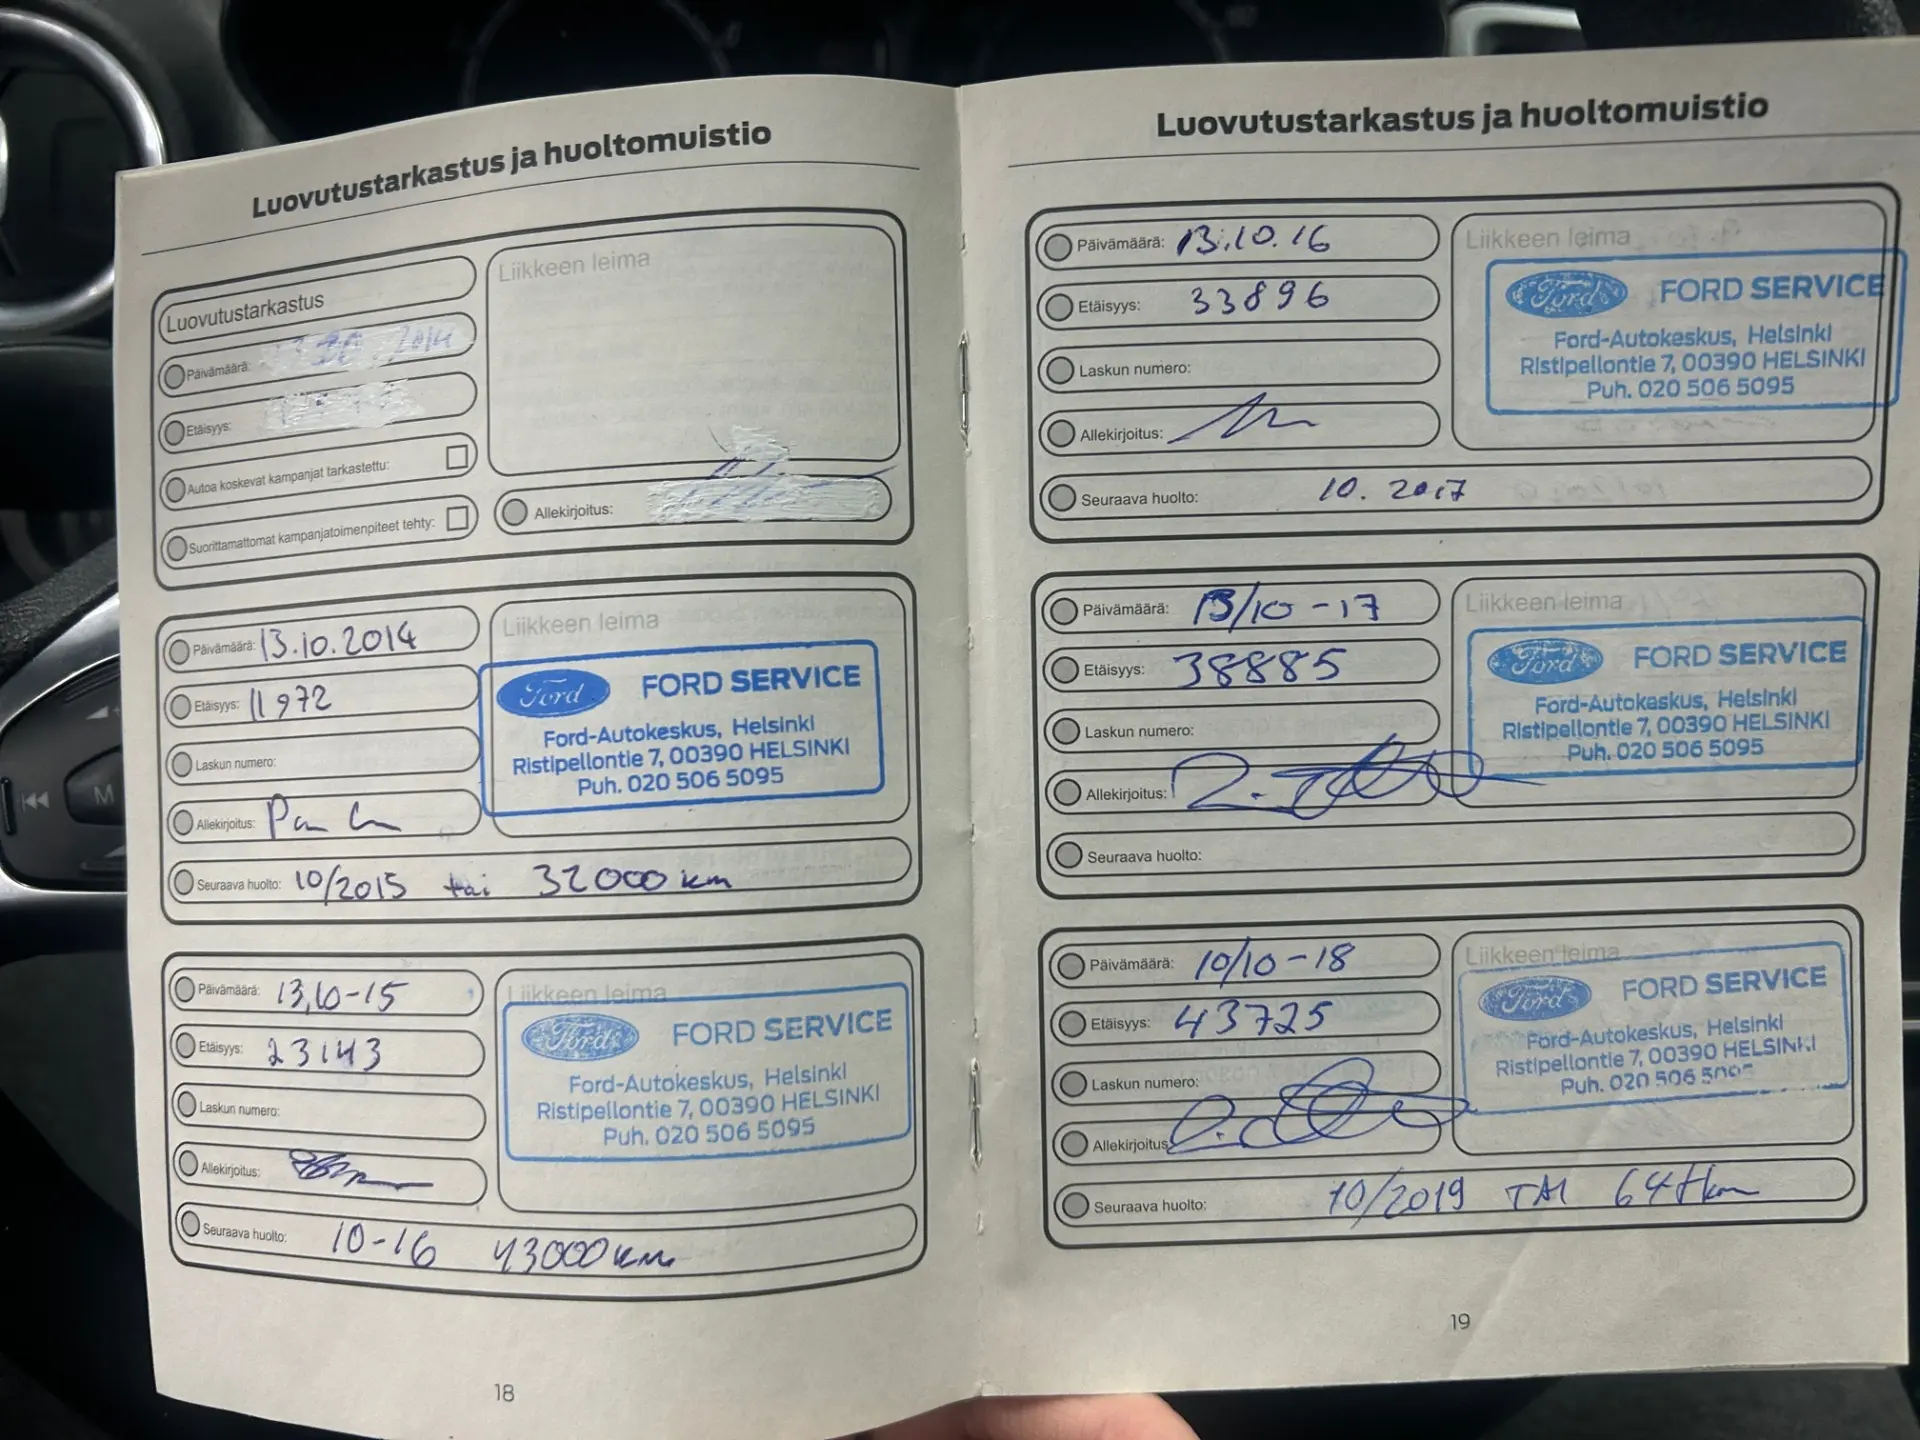 Luovutustarkastus ja huoltomuistio
Luovutustarkastus
Päivämäärä: 2014
Etäisyys:
Autoa koskevat kampanjat tarkastettu:
Suorittamattomat kampanjatoimenpiteet tehty:
Liikkeen leima
Allekirjoitus:
Päivämäärä: 13.10.2014
Etäisyys: 11972
Laskun numero:
Allekirjoitus:
Seuraava huolto: 10/2015 tai 32000 km
Liikkeen leima
Ford FORD SERVICE
Ford-Autokeskus, Helsinki
Ristipellontie 7, 00390 HELSINKI
Puh. 020 506 5095
Päivämäärä: 13,10-15
Etäisyys: 23143
Laskun numero:
Allekirjoitus:
Seuraava huolto: 10-16 43000 km
Liikkeen leima
Ford FORD SERVICE
Ford-Autokeskus, Helsinki
Ristipellontie 7, 00390 HELSINKI
Puh. 020 506 5095
18
Luovutustarkastus ja huoltomuistio
Päivämäärä: 13.10.16
Etäisyys: 33896
Laskun numero:
Allekirjoitus:
Seuraava huolto: 10. 2017
Liikkeen leima
Ford FORD SERVICE
Ford-Autokeskus, Helsinki
Ristipellontie 7, 00390 HELSINKI
Puh. 020 506 5095
Päivämäärä: 13/10-17
Etäisyys: 38885
Laskun numero:
Allekirjoitus:
Seuraava huolto:
Liikkeen leima
Ford FORD SERVICE
Ford-Autokeskus, Helsinki
Ristipellontie 7, 00390 HELSINKI
Puh. 020 506 5095
Päivämäärä: 10/10-18
Etäisyys: 43725
Laskun numero:
Allekirjoitus:
Seuraava huolto: 10/2019 TAI 64tkm
Liikkeen leima
Ford FORD SERVICE
Ford-Autokeskus, Helsinki
Ristipellontie 7, 00390 HELSINKI
Puh. 020 506 5095
19
M